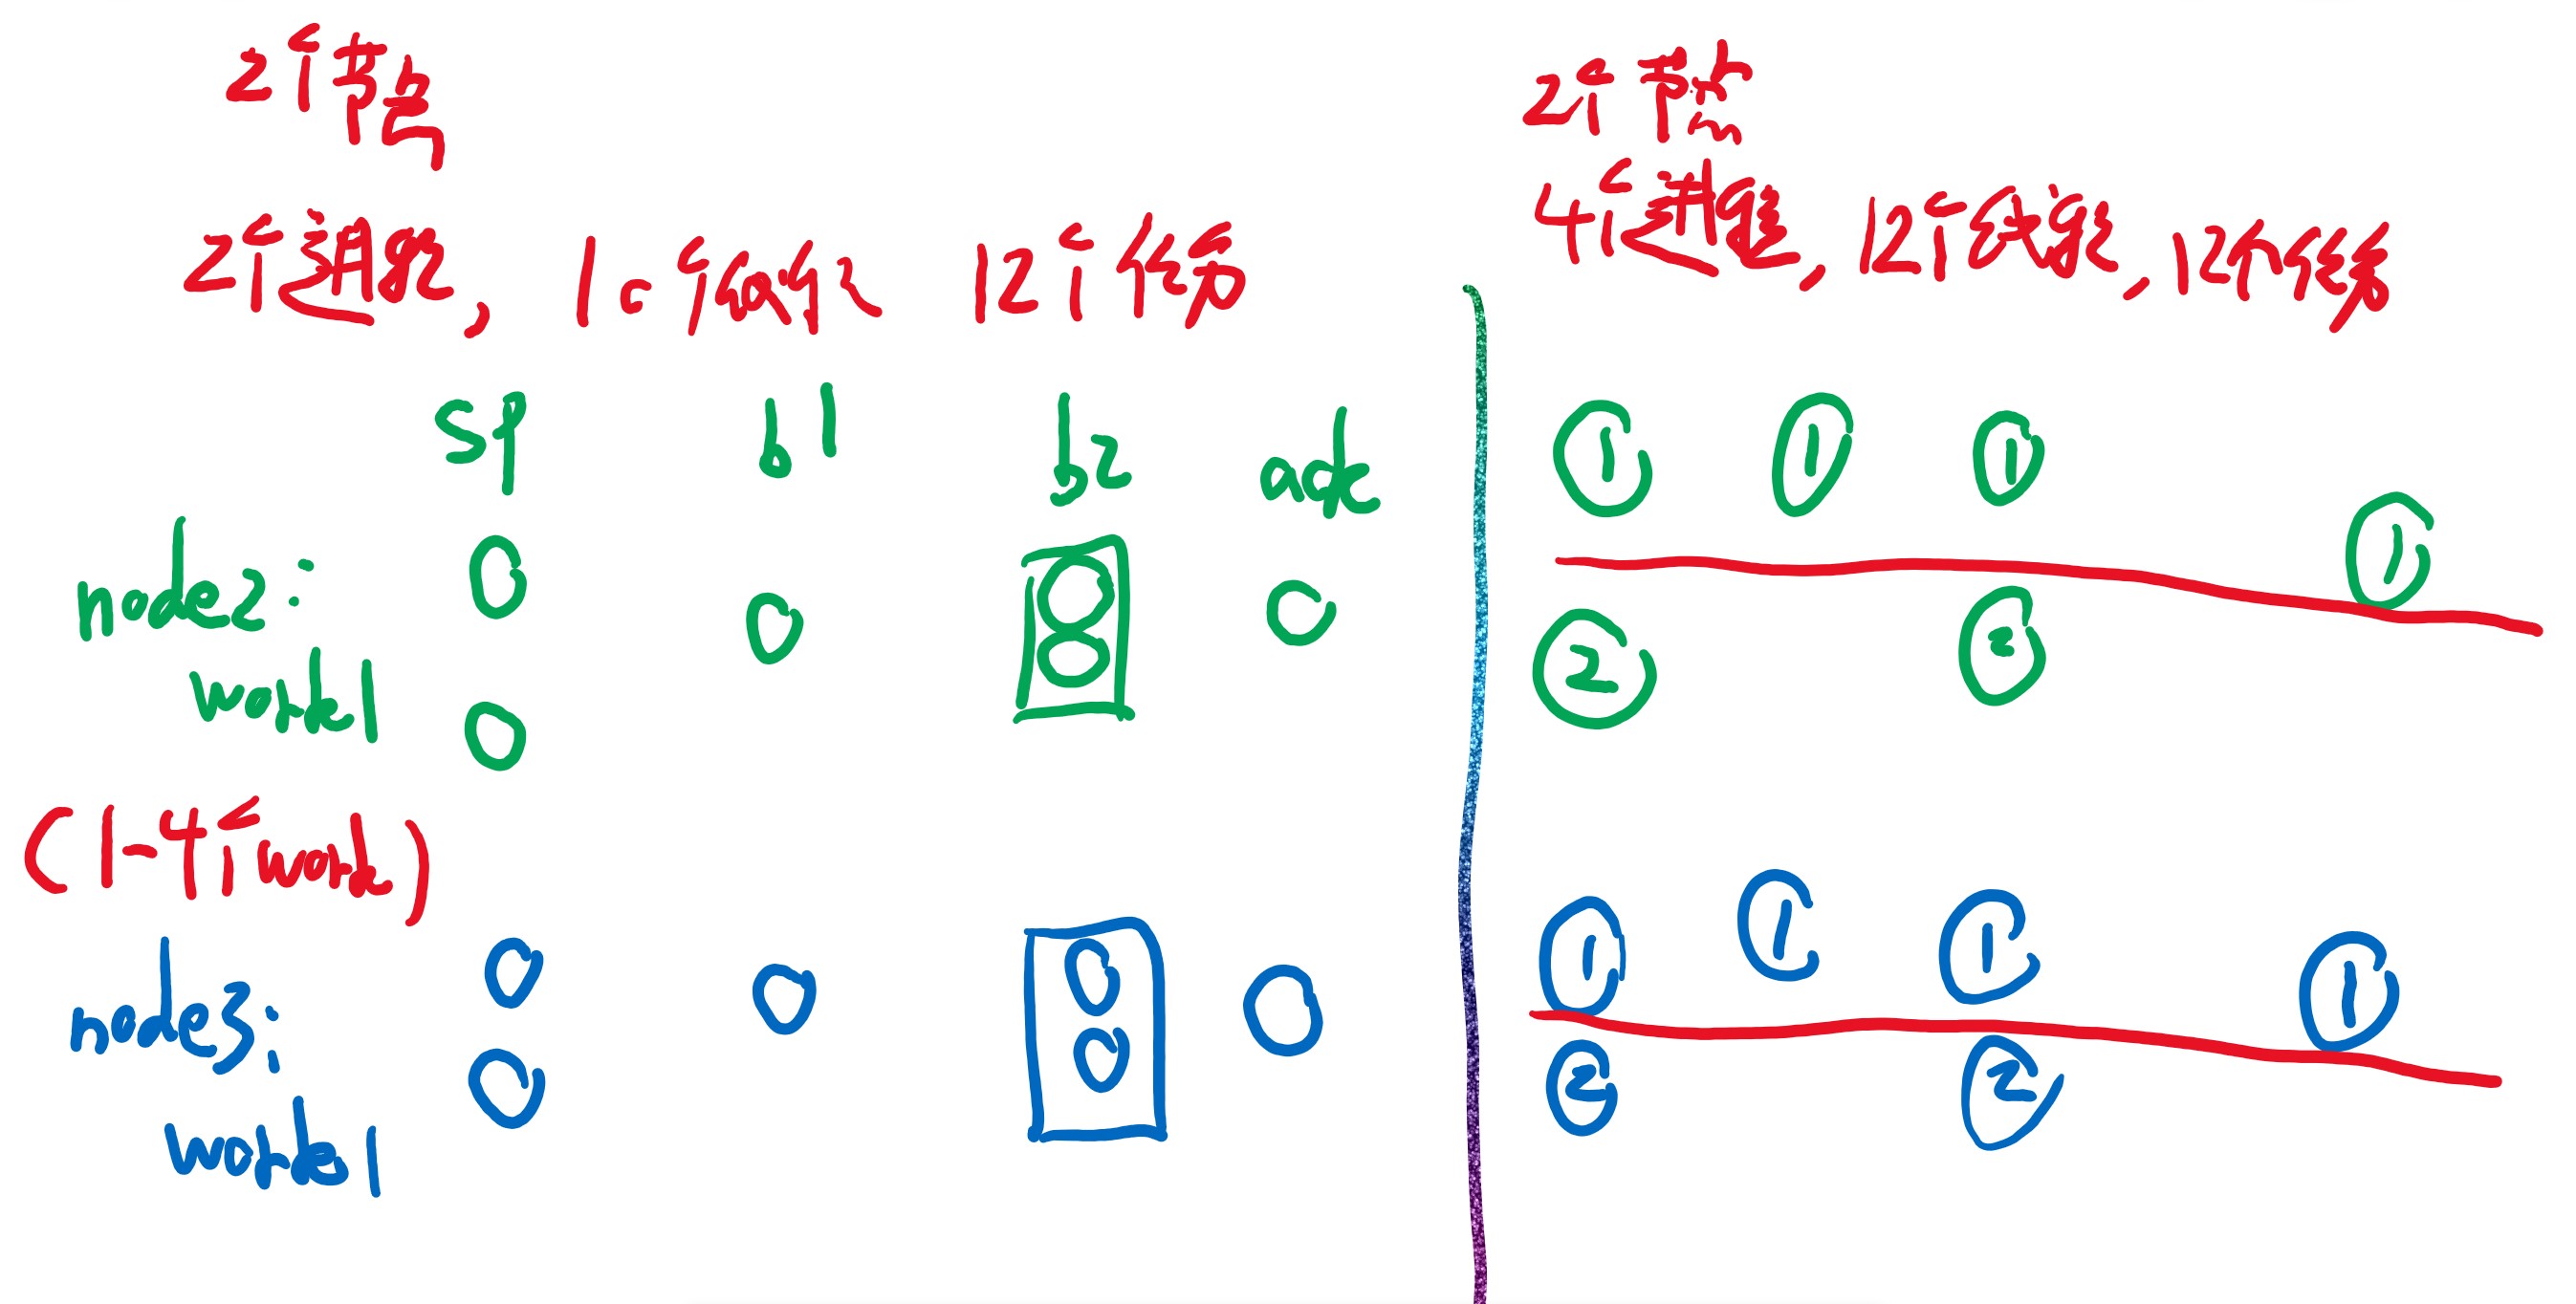 2个节点
2个进程，10个线程 12个任务
sp b1 b2 ack
node2：
work1
（1-4个work）
node3：
work1
2个节点
4个进程，12个线程，12个任务
① ① ① ①
② ②
① ① ① ①
② ②